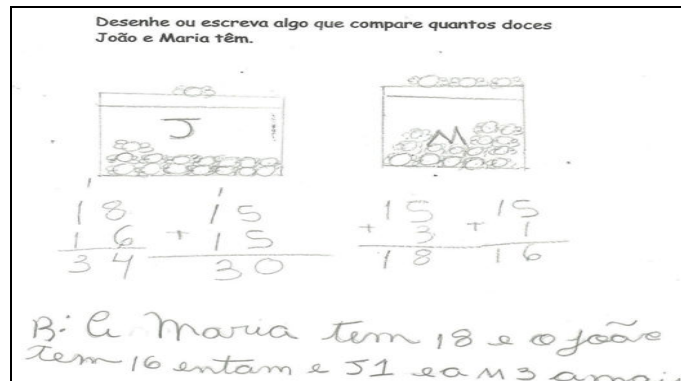 Desenhe ou escreva algo que compare quantos doces
João e Maria têm.
J
M
1 1
18 15 15 15
16 + 15 + 3 + 1
34 30 18 16
B: A Maria tem 18 e o João
tem 16 entam e J1 e a M3 amais